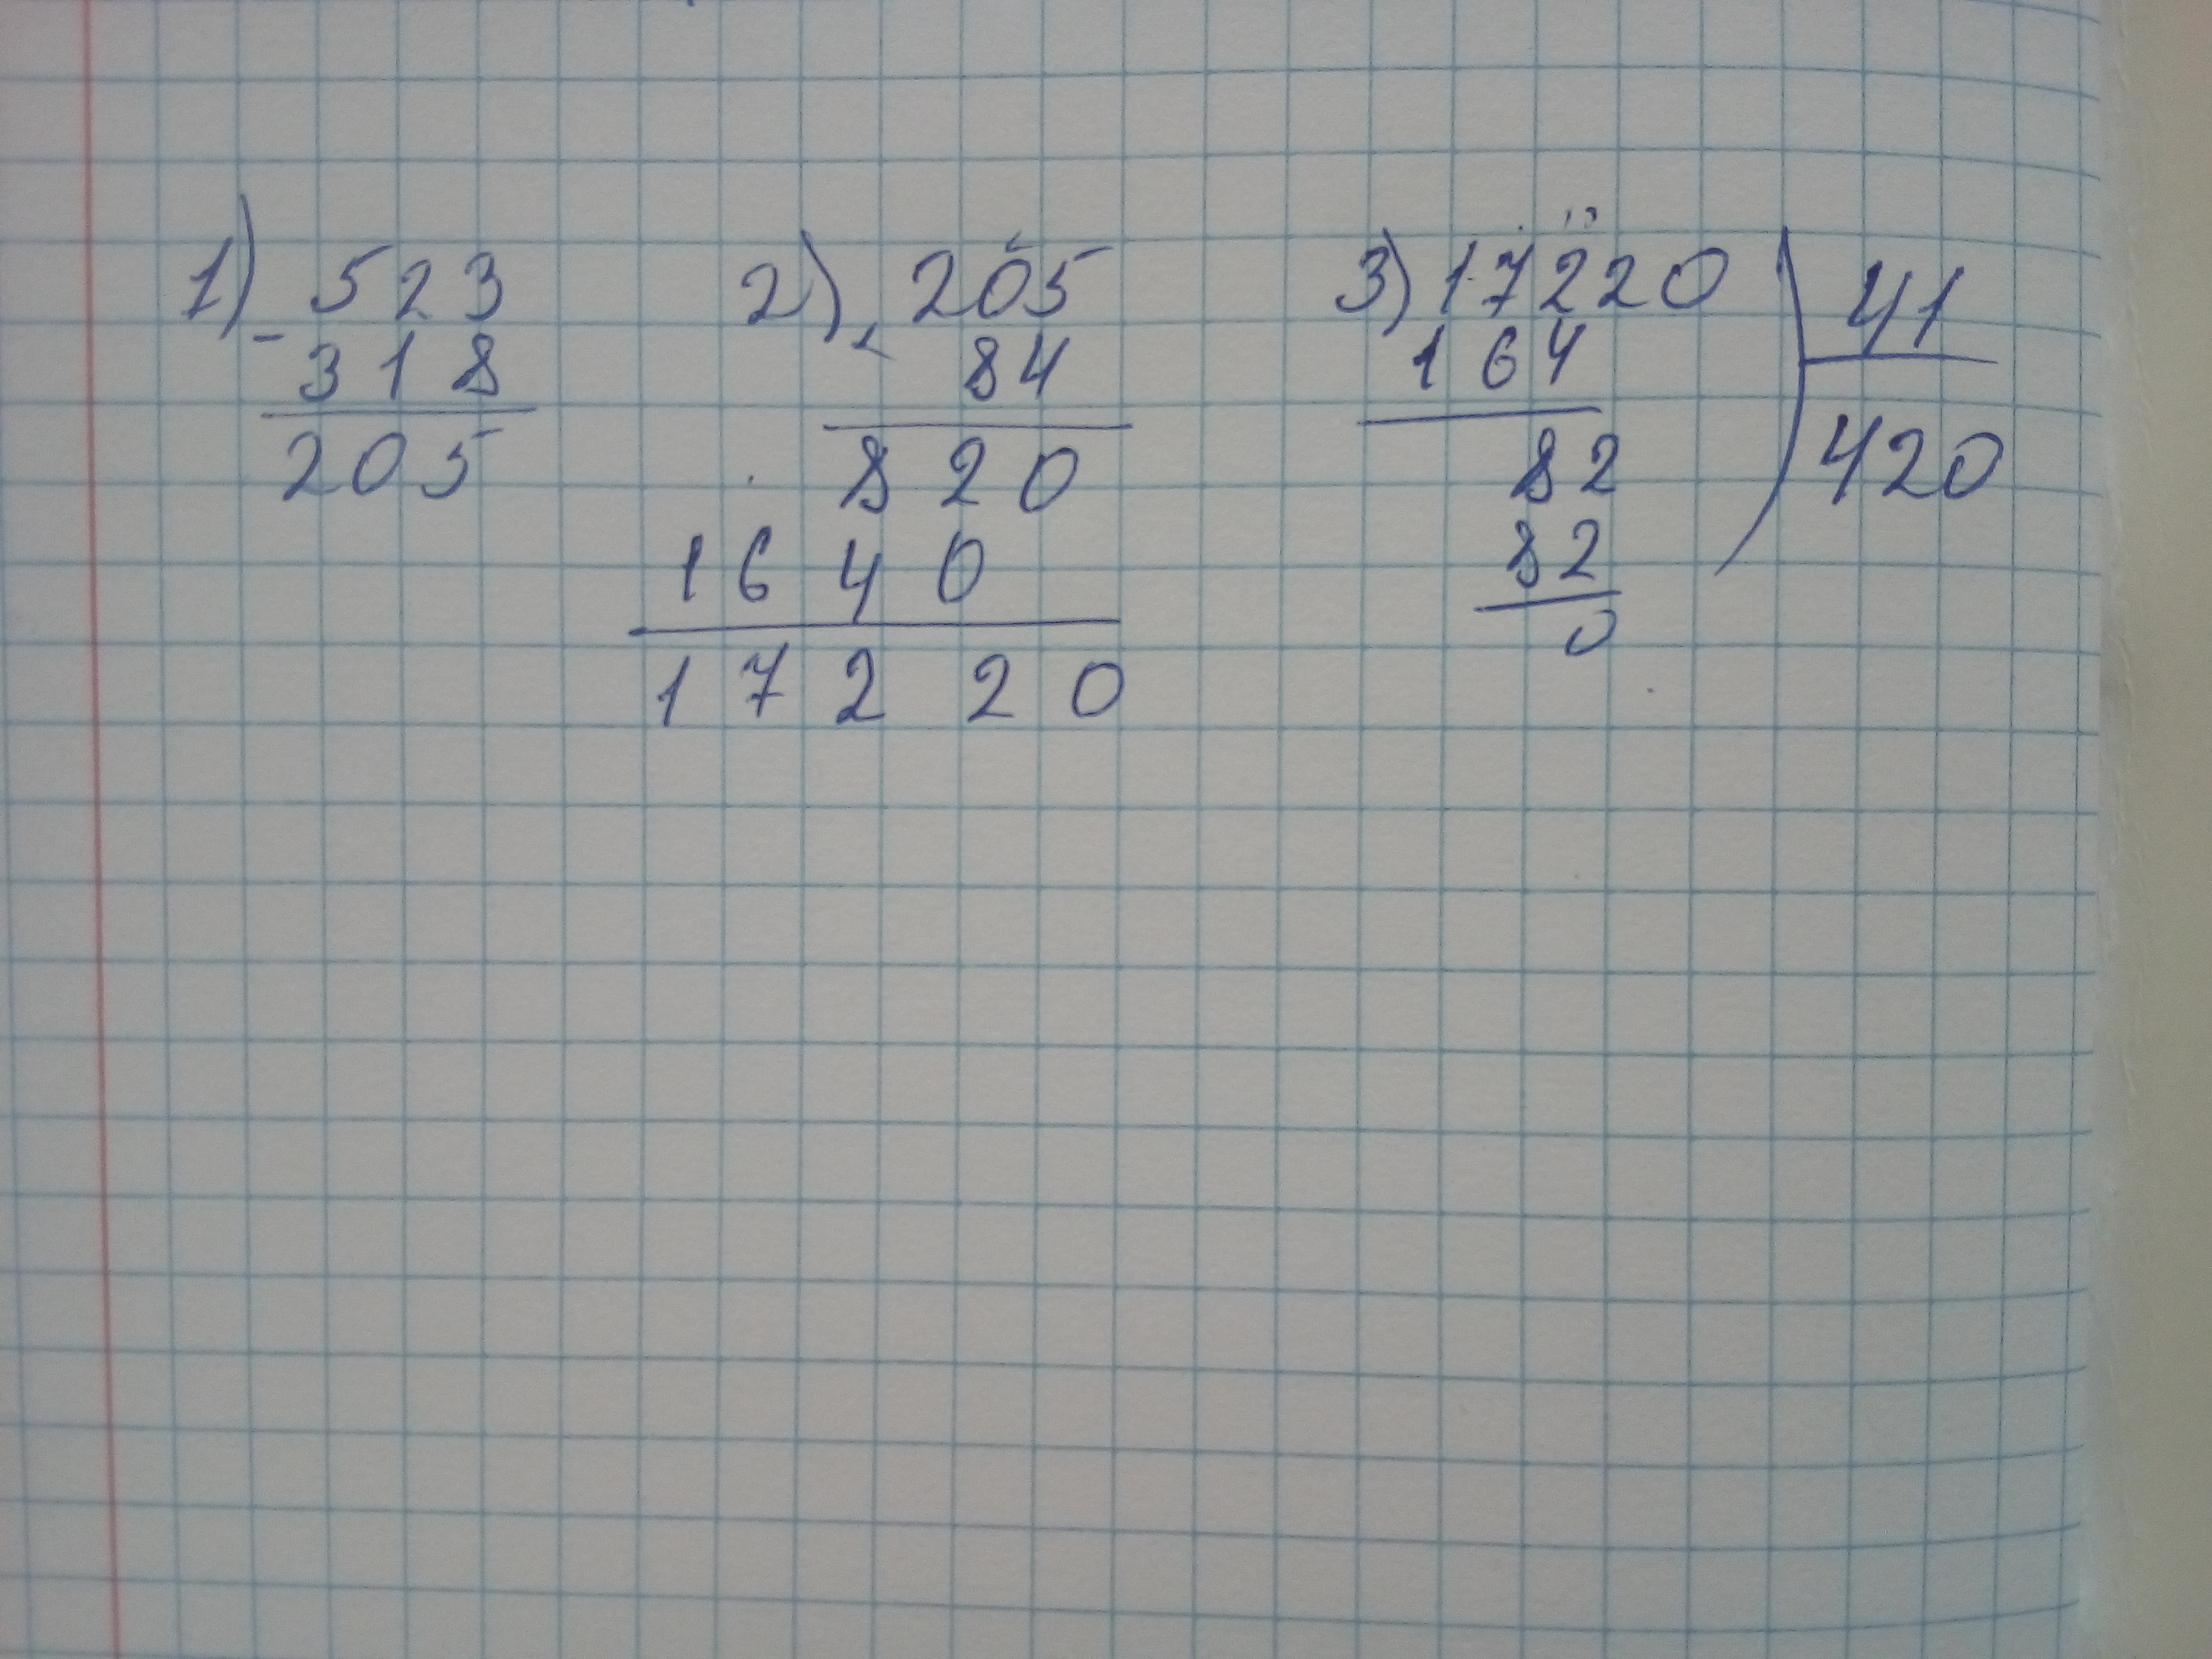 1) - 523
318
205
2) × 205
84
820
1640
17220
3) 17220 41
164 420
82
82
0